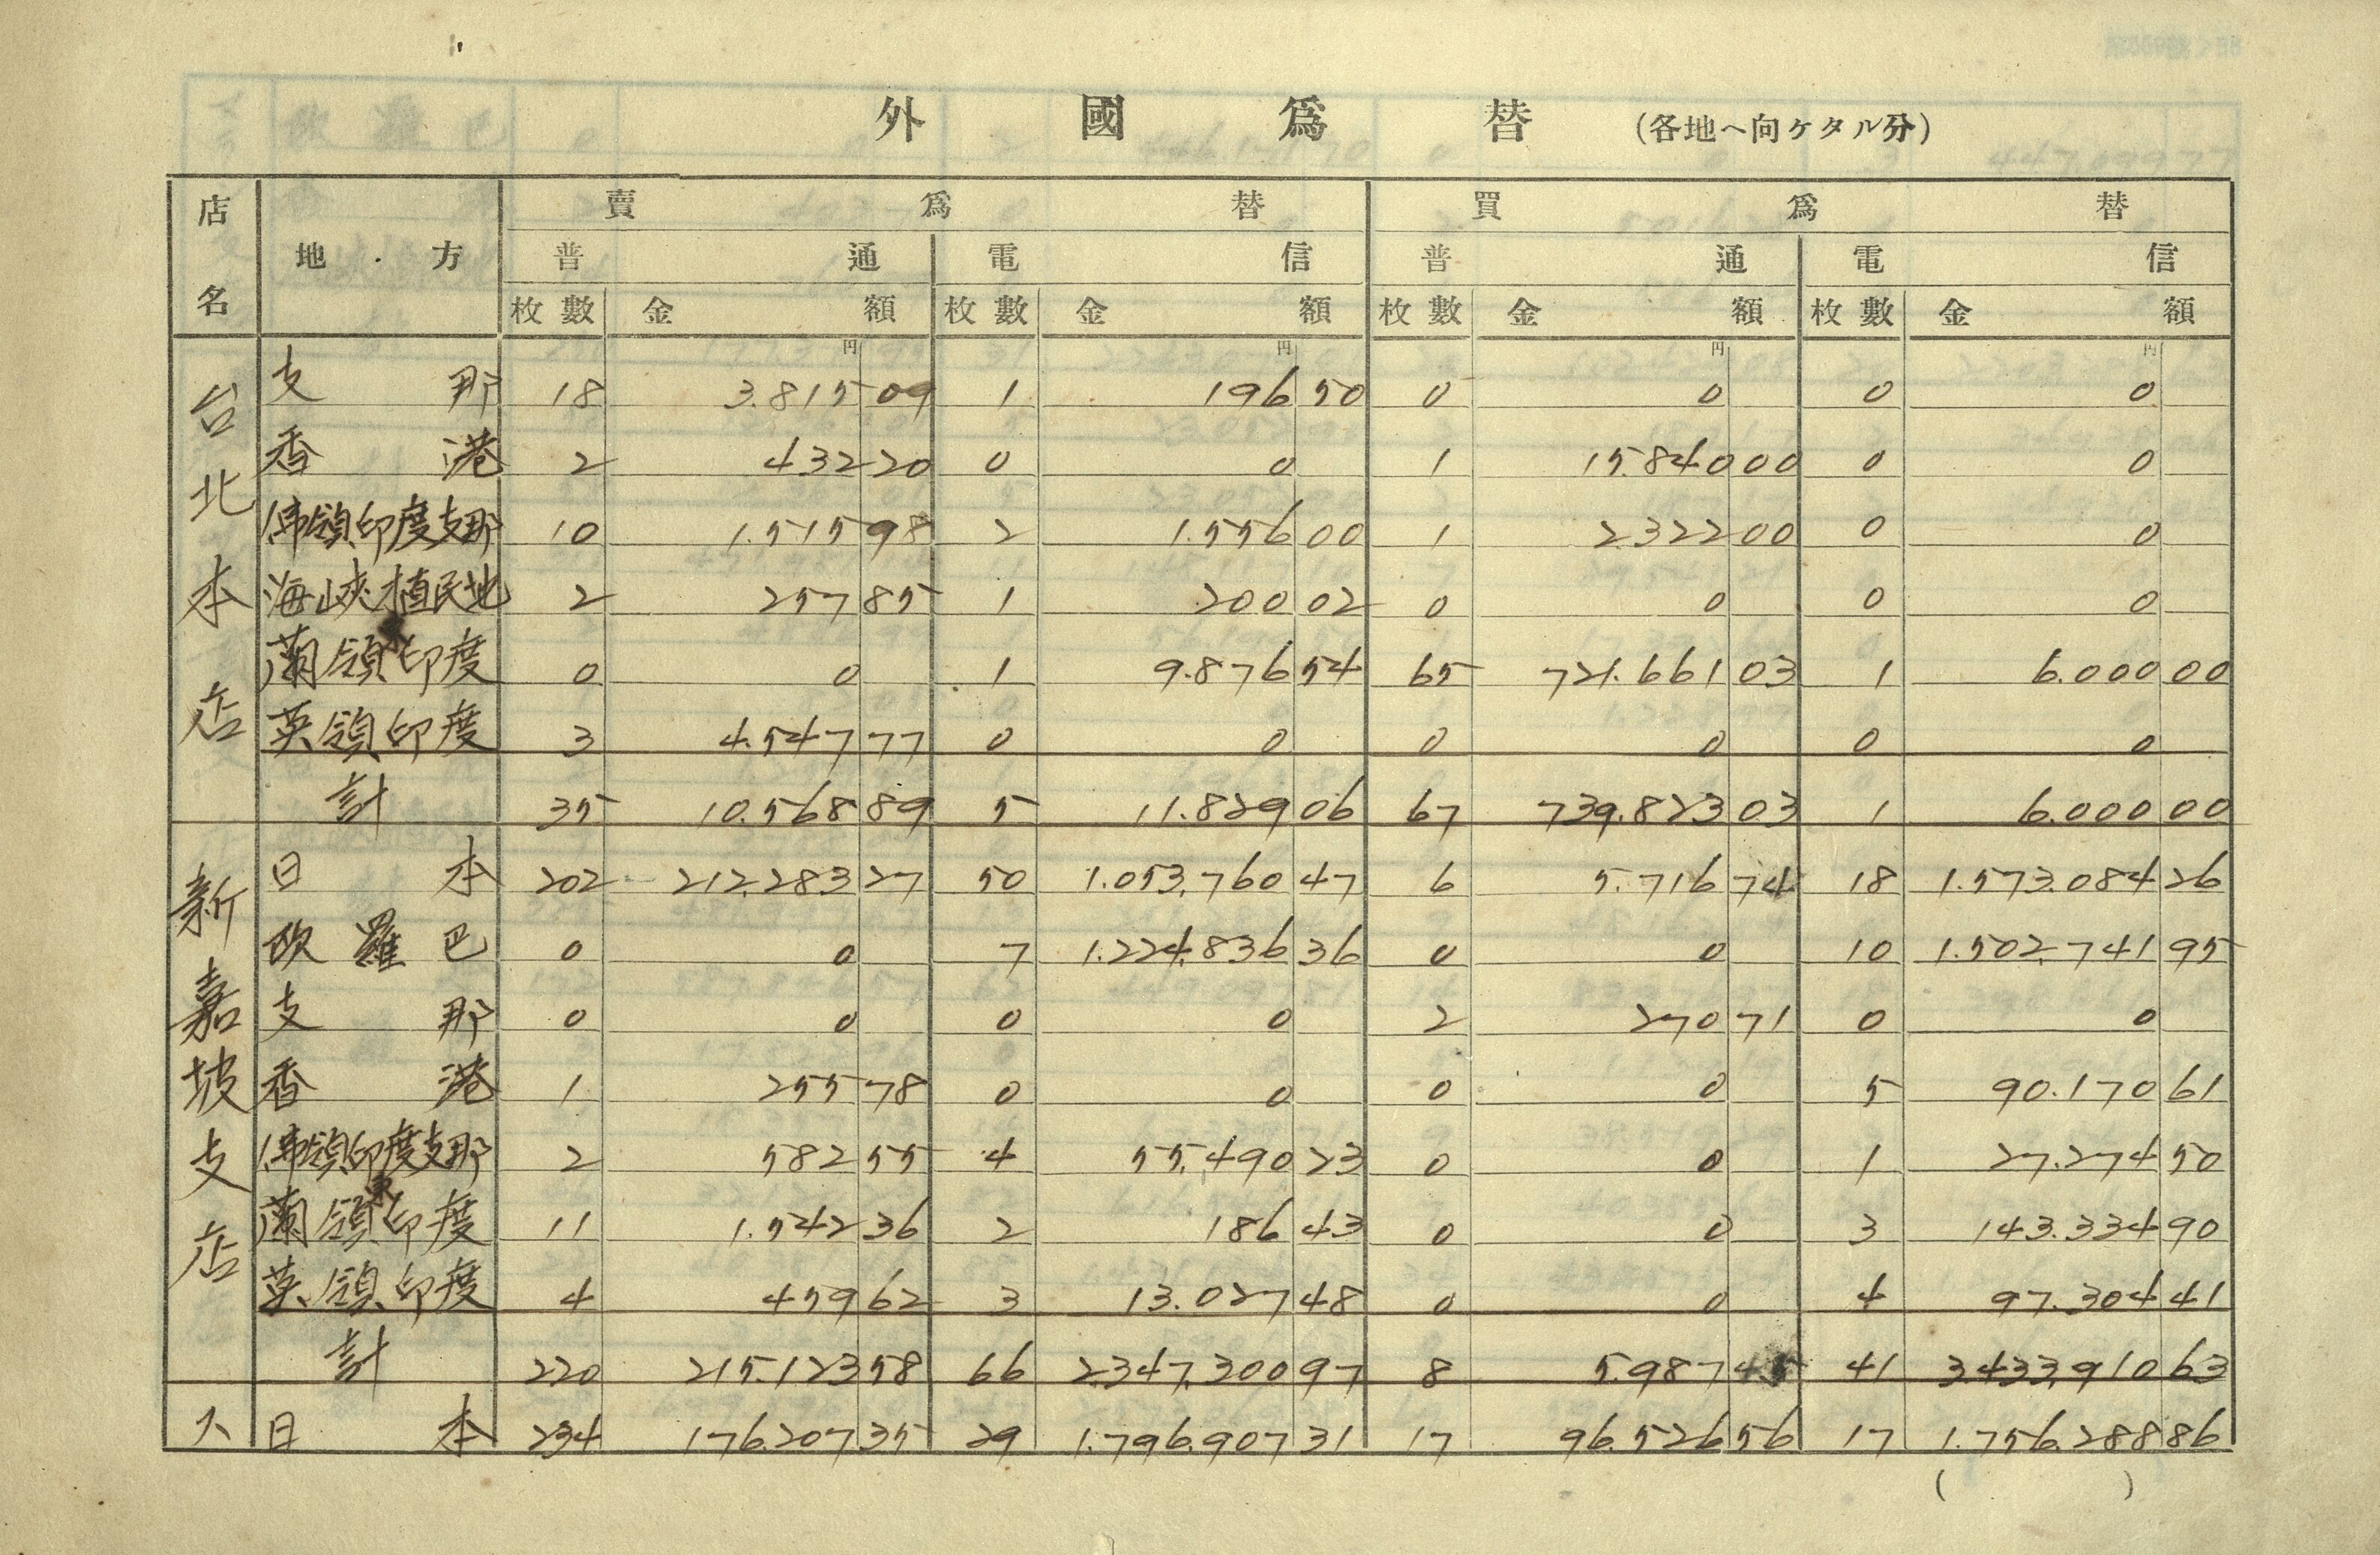 外國爲替 (各地ヘ向ケタル分)
店名 地方 賣爲替 買爲替
普通 電信 普通 電信
枚數 金額 枚數 金額 枚數 金額 枚數 金額
円 円 円 円
台北本店
支那 18 3.815 09 1 196 50 0 0 0 0
香港 2 432 20 0 0 1 15.840 00 0 0
佛領印度支那 10 1.515 98 2 1.556 00 1 2.322 00 0 0
海峽植民地 2 257 85 1 200 02 0 0 0 0
蘭領東印度 0 0 1 9.876 54 65 721.661 03 1 6.000 00
英領印度 3 4.547 77 0 0 0 0 0 0
計 35 10.568 89 5 11.829 06 67 739.823 03 1 6.000 00
新嘉坡支店
日本 202 212.283 27 50 1.053.760 47 6 5.716 74 18 1.573.084 26
欧羅巴 0 0 7 1.224.836 36 0 0 10 1.502.741 95
支那 0 0 0 0 2 270 71 0 0
香港 1 255 78 0 0 0 0 5 90.170 61
佛領印度支那 2 582 55 4 55.490 23 0 0 1 27.274 50
蘭領東印度 11 1.542 36 2 186 43 0 0 3 143.334 90
英領印度 4 459 62 3 13.027 48 0 0 4 97.304 41
計 220 215.123 58 66 2.347.300 97 8 5.987 45 41 3.433.910 63
日本 234 176.207 35 29 1.796.907 31 17 96.526 56 17 1.756.288 86
( )